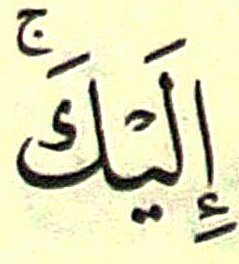 إِلَيْكَۚ